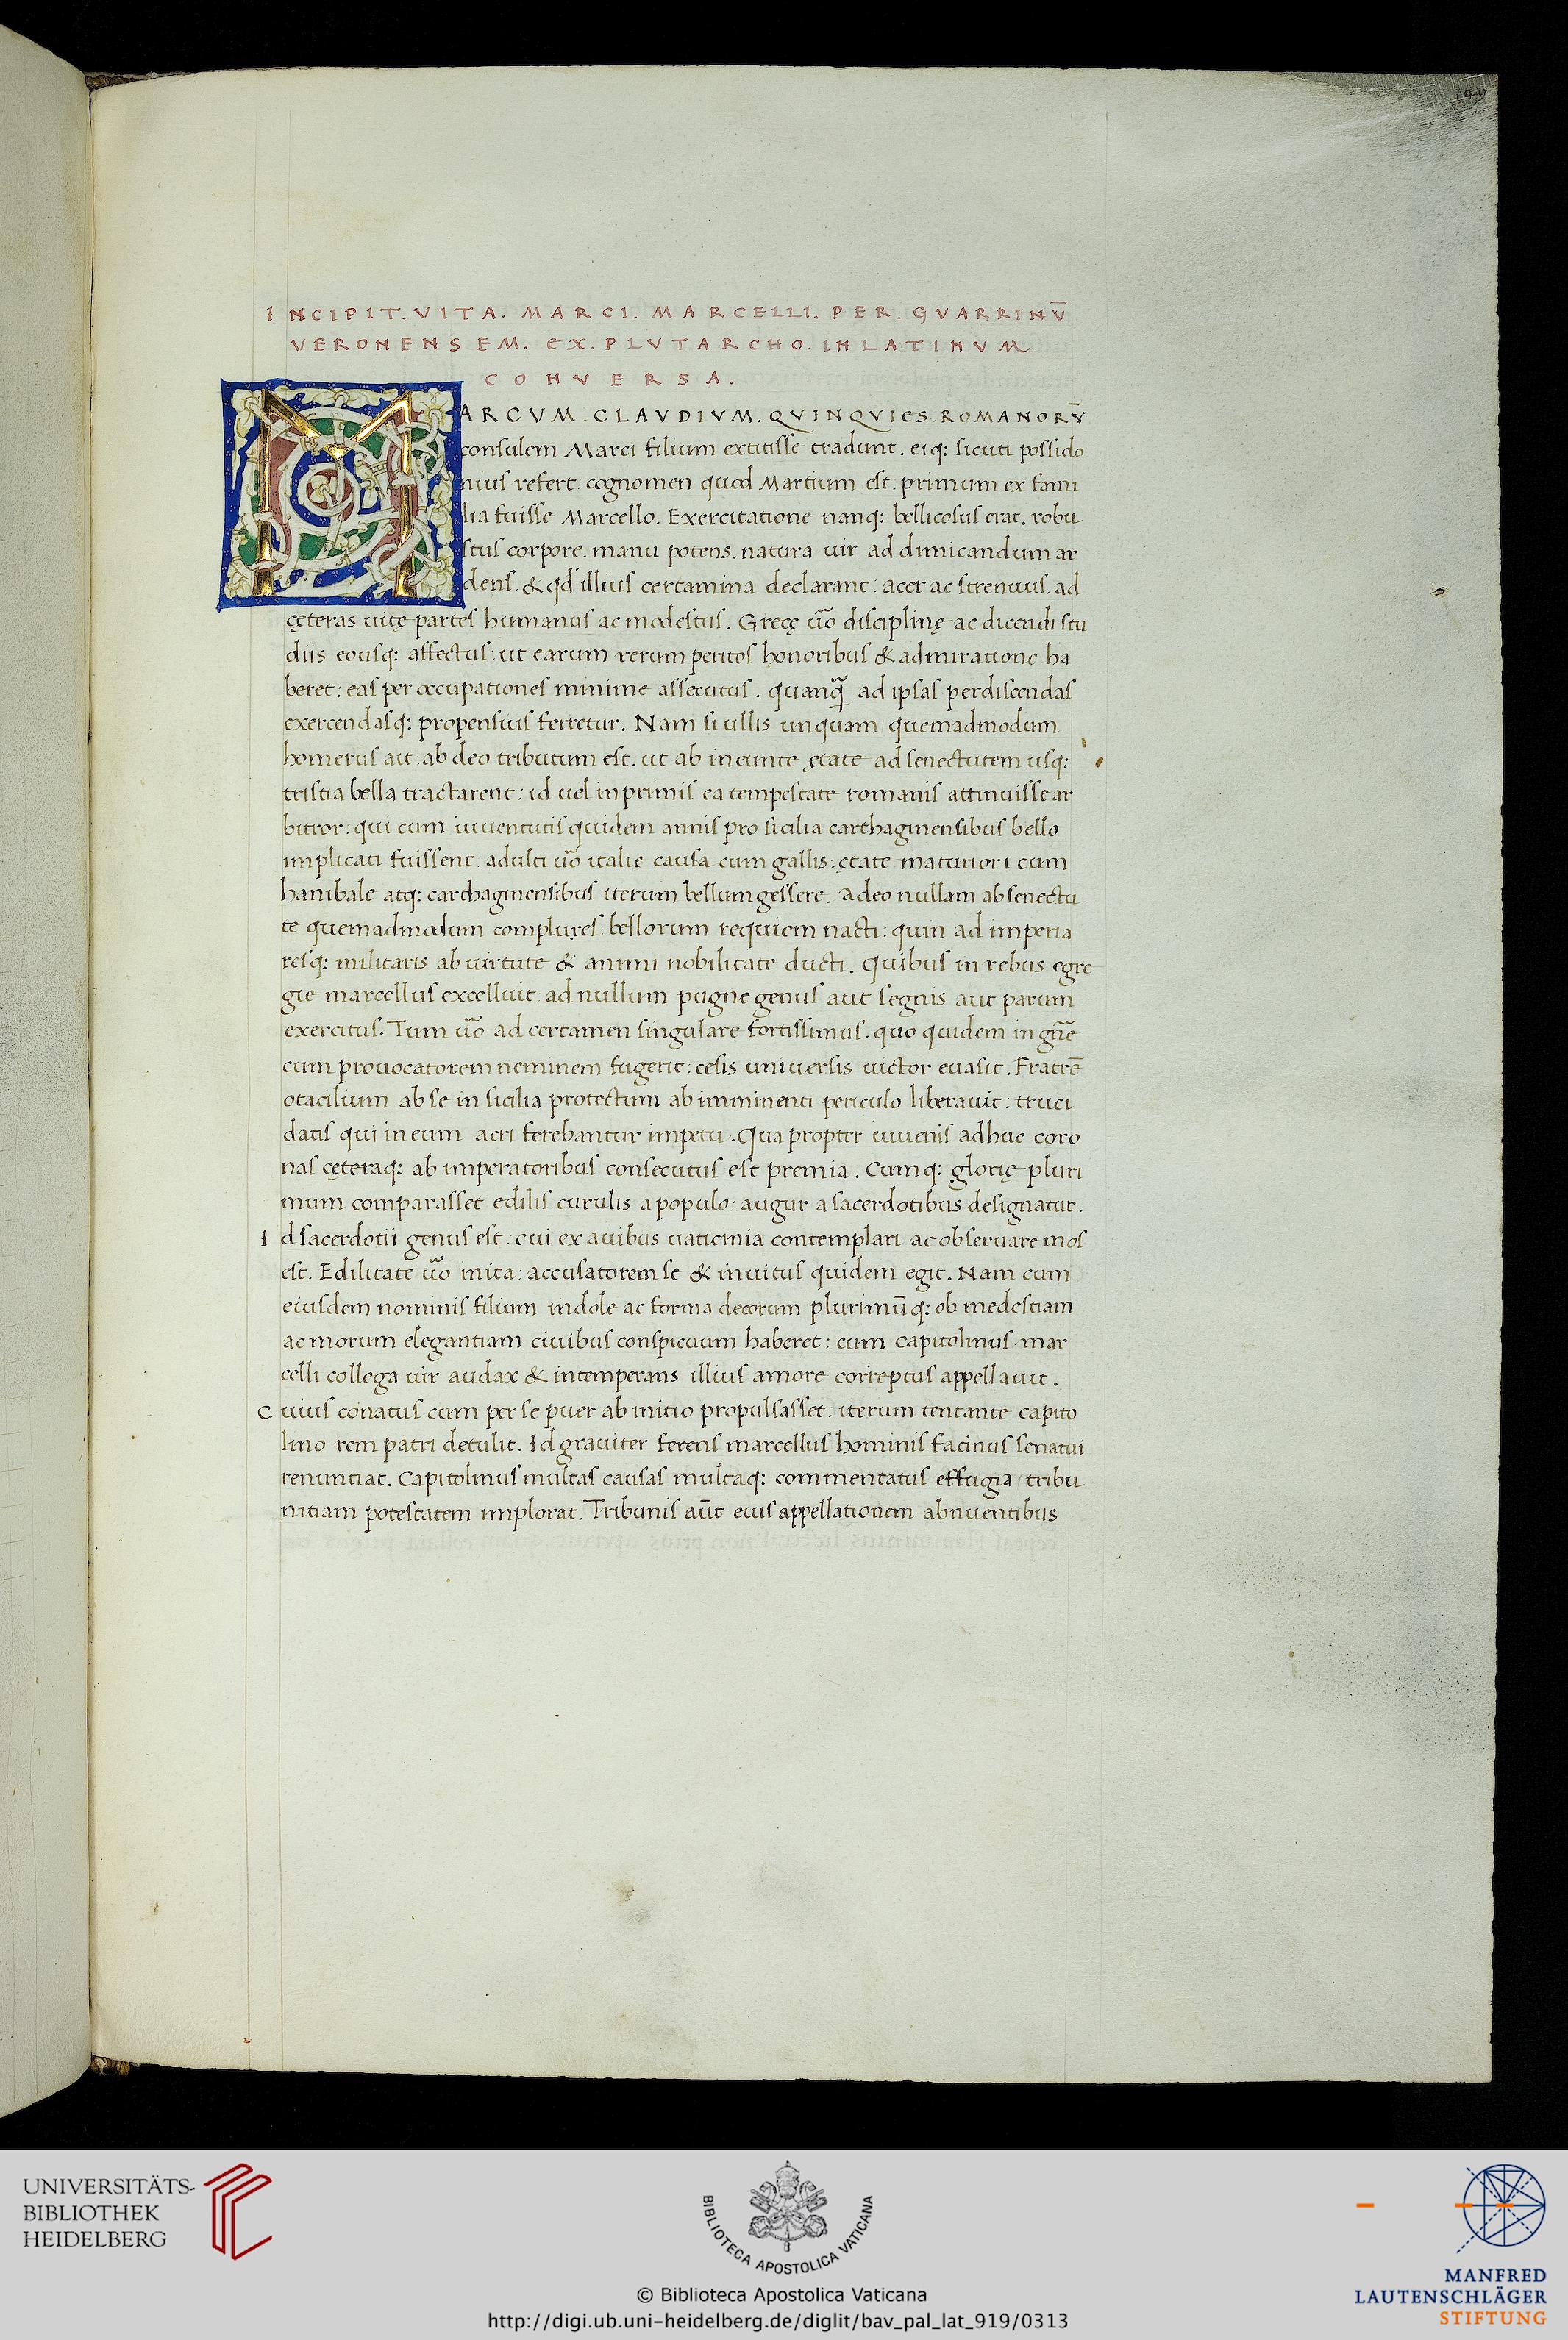 199
INCIPIT. VITA. MARCI. MARCELLI. PER. GVARRINV̄
VERONENSEM. EX. PLVTARCHO. IN LATINVM
CONVERSA.
MARCVM. CLAVDIVM. QVINQVIES. ROMANORV̄
consulem Marci filium extitisse tradunt. eiq: sicuti possido
nius refert. cognomen quod Martium est. primum ex fami
lia fuisse Marcello. Exercitatione nanq: bellicosus erat. robu
stus corpore. manu potens. natura uir ad dimicandum ar
dens. & qd' illius certamina declarant: acer ac strenuus. ad
cęteras uitę partes humanus ac modestus. Gręcę uo̅ disciplinę ac dicendi stu
diis eousq: affectus: ut earum rerum peritos honoribus & admiratione ha
beret: eas per occupationes minime assecutus. quanq̃ ad ipsas perdiscendas
exercendasq: propensius ferretur. Nam si ullis unquam quemadmodum
homerus ait. ab deo tributum est. ut ab ineunte ętate ad senectutem usq:
tristia bella tractarent: id uel in primis ea tempestate romanis attinuisse ar
bitror. qui cum iuuentutis quidem annis pro sicilia carthaginensibus bello
implicati fuissent. adulti uo̅ italie causa cum gallis: ętate maturiori cum
hanibale atq: carthaginensibus iterum bellum gessere. Adeo nullam ab senectu
te quemadmodum complures. bellorum requiem nacti: quin ad imperia
resq: militaris ab uirtute & animi nobilitate ducti. Quibus in rebus egre
gie marcellus excelluit. ad nullum pugne genus aut segnis aut parum
exercitus. Tum uo̅ ad certamen singulare fortissimus. quo quidem in gn̅e
cum prouocatorem neminem fugerit: cesis uniuersis uictor euasit. Fratre̅
otacilium ab se in sicilia protectum ab imminenti periculo liberauit: truci
datis qui in eum acri ferebantur impetu. Qua propter iuuenis adhuc coro
nas cęteraq: ab imperatoribus consecutus est premia. Cumq: glorię pluri
mum comparasset edilis curulis a populo: augur a sacerdotibus designatur.
Id sacerdotii genus est: cui ex auibus uaticinia contemplari ac obseruare mos
est. Edilitate uo̅ inita: accusatorem se & inuitus quidem egit. Nam cum
eiusdem nominis filium indole ac forma decorum plurimu̅q: ob medestiam
ac morum elegantiam ciuibus conspicuum haberet: eum capitolinus mar
celli collega uir audax & intemperans illius amore correptus appellauit.
Cuius conatus cum per se puer ab initio propulsasset: iterum tentante capito
lino rem patri detulit. Id grauiter ferens marcellus hominis facinus senatui
renuntiat. Capitolinus multas causas multaq: commentatus effugia tribu
nitiam potestatem implorat. Tribunis au̅t eius appellationem abnuentibus
UNIVERSITÄTS-
BIBLIOTHEK
HEIDELBERG
BIBLIOTECA APOSTOLICA VATICANA
© Biblioteca Apostolica Vaticana
http://digi.ub.uni-heidelberg.de/diglit/bav_pal_lat_919/0313
MANFRED
LAUTENSCHLÄGER
STIFTUNG